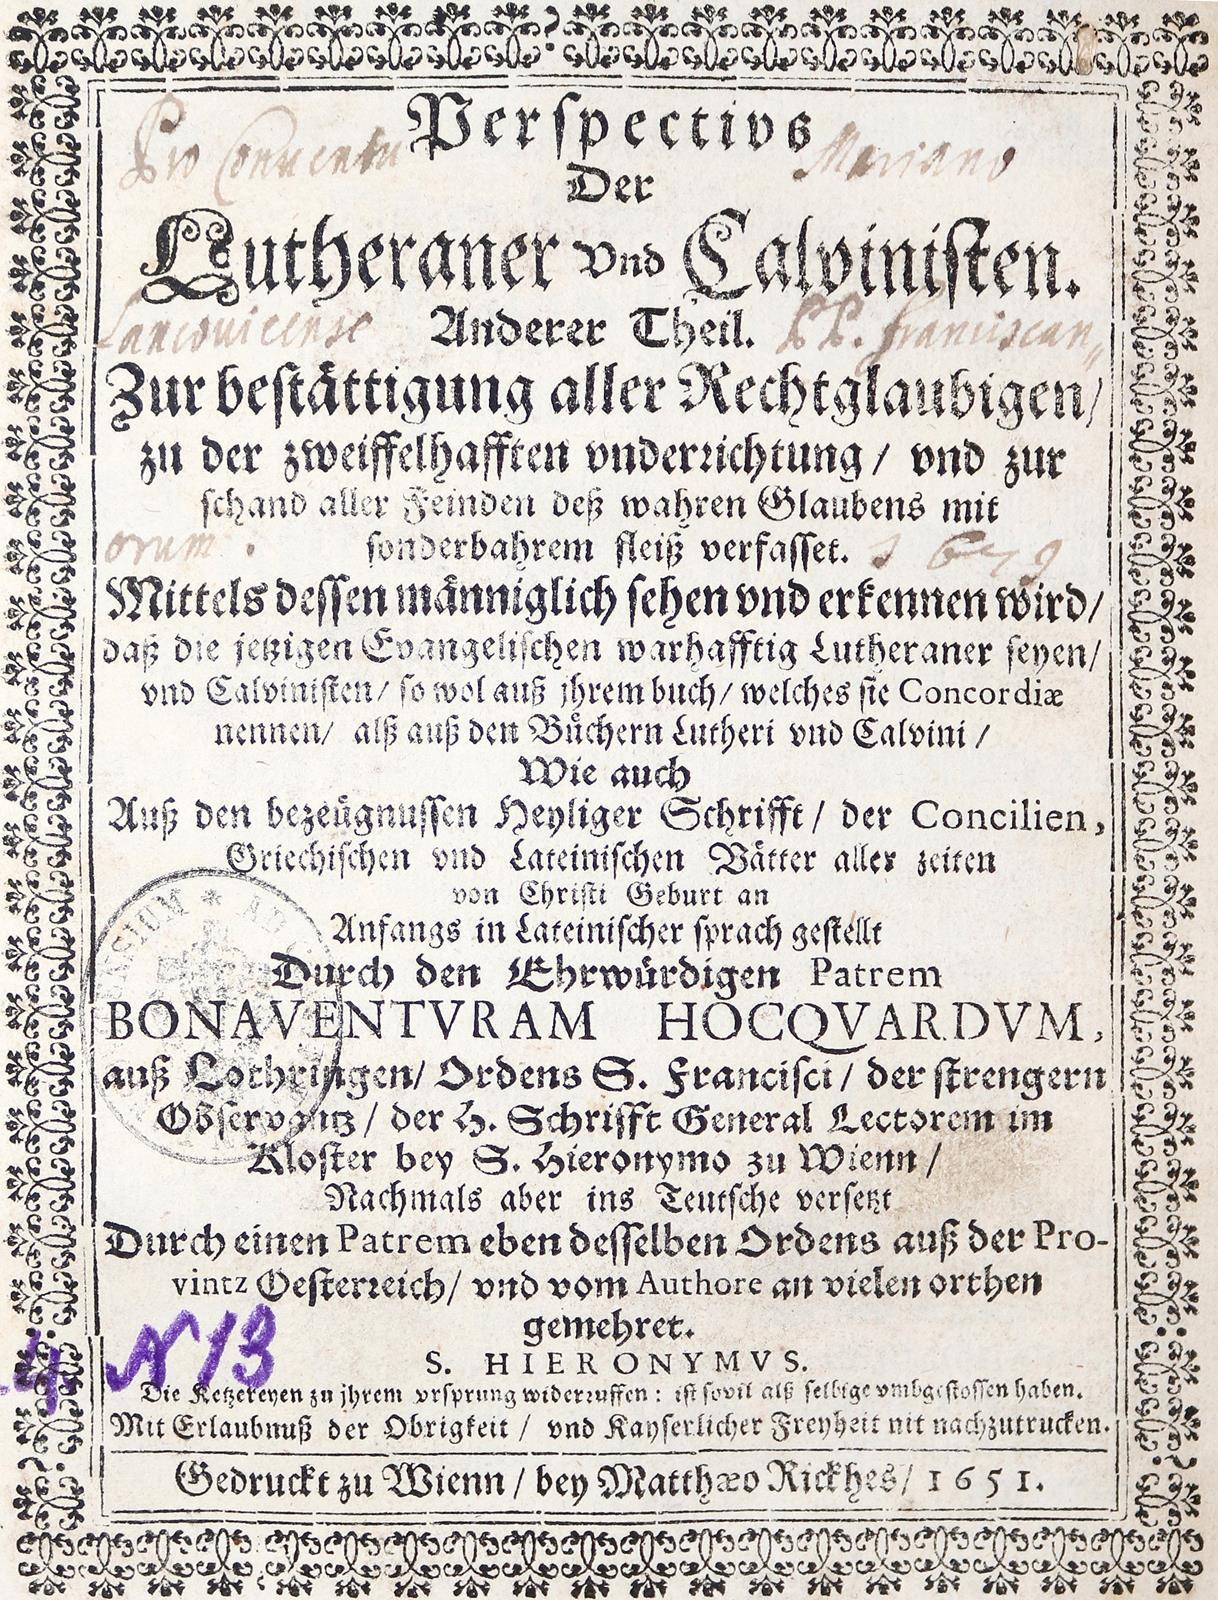 Perspectivs
Pro Conventu Mariano
Der
Lutheraner vnd Calvinisten.
Lancovicense Anderer Theil. PP. Franciscan„
Zur bestättigung aller Rechtglaubigen/
zu der zweiffelhafften vnderrichtung/ vnd zur
schand aller Feinden deß wahren Glaubens mit
orum. sonderbahrem fleiß verfasset. 1679
Mittels dessen männiglich sehen vnd erkennen wird/
daß die jetzigen Evangelischen warhafftig Lutheraner seyen/
vnd Calvinisten/ so wol auß jhrem buch/ welches sie Concordiæ
nennen/ alß auß den Büchern Lutheri vnd Calvini/
Wie auch
Auß den bezeügnussen Heyliger Schrifft/ der Concilien,
Griechischen vnd Lateinischen Vätter aller zeiten
von Christi Geburt an
Anfangs in Lateinischer sprach gestellt
Durch den Ehrwürdigen Patrem
BONAVENTVRAM HOCQVARDVM,
auß Lothringen/ Ordens S. Francisci/ der strengern
Observantz/ der H. Schrifft General Lectorem im
Kloster bey S. Hieronymo zu Wienn/
Nachmals aber ins Teutsche versetzt
Durch einen Patrem eben desselben Ordens auß der Pro-
vintz Oesterreich/ vnd vom Authore an vielen orthen
gemehret.
N 13
S. HIERONYMVS.
Die Ketzereyen zu jhrem vrsprung widerruffen: ist sovil alß selbige vmbgestossen haben.
Mit Erlaubnuß der Obrigkeit/ vnd Kayserlicher Freyheit nit nachzutrucken.
Gedruckt zu Wienn/ bey Matthæo Rickhes/ 1651.